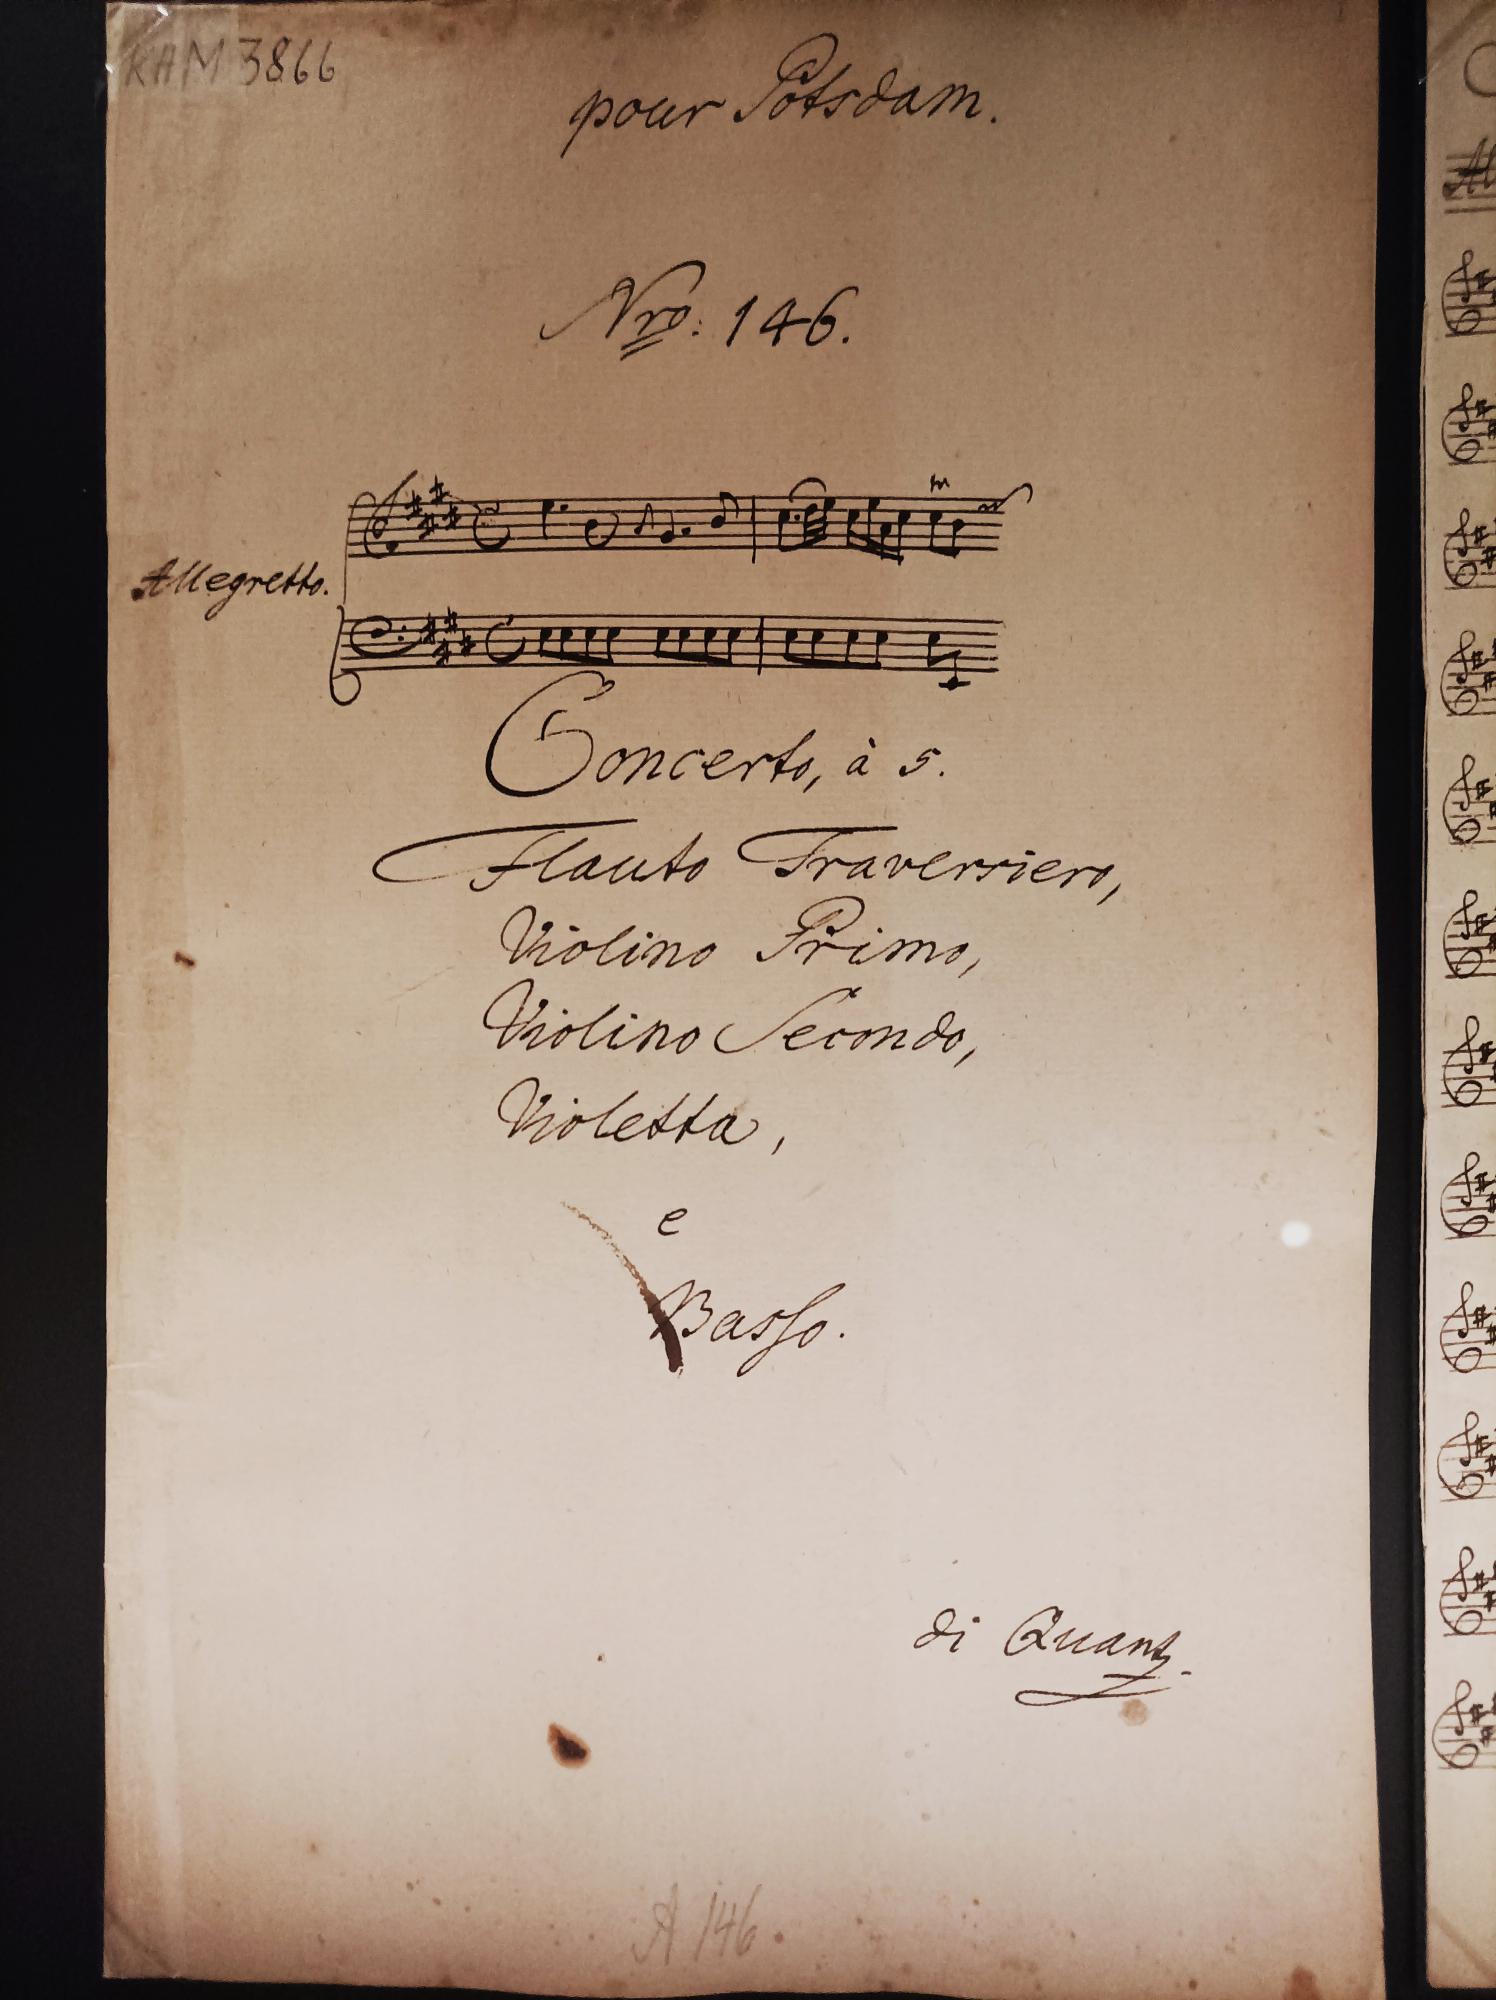 KHM 3866
pour Potsdam.
Nro: 146.
Allegretto.
Concerto, à 5.
Flauto Traversiero,
Violino Primo,
Violino Secondo,
Violetta,
e
Basso.
di Quantz.
A 146.